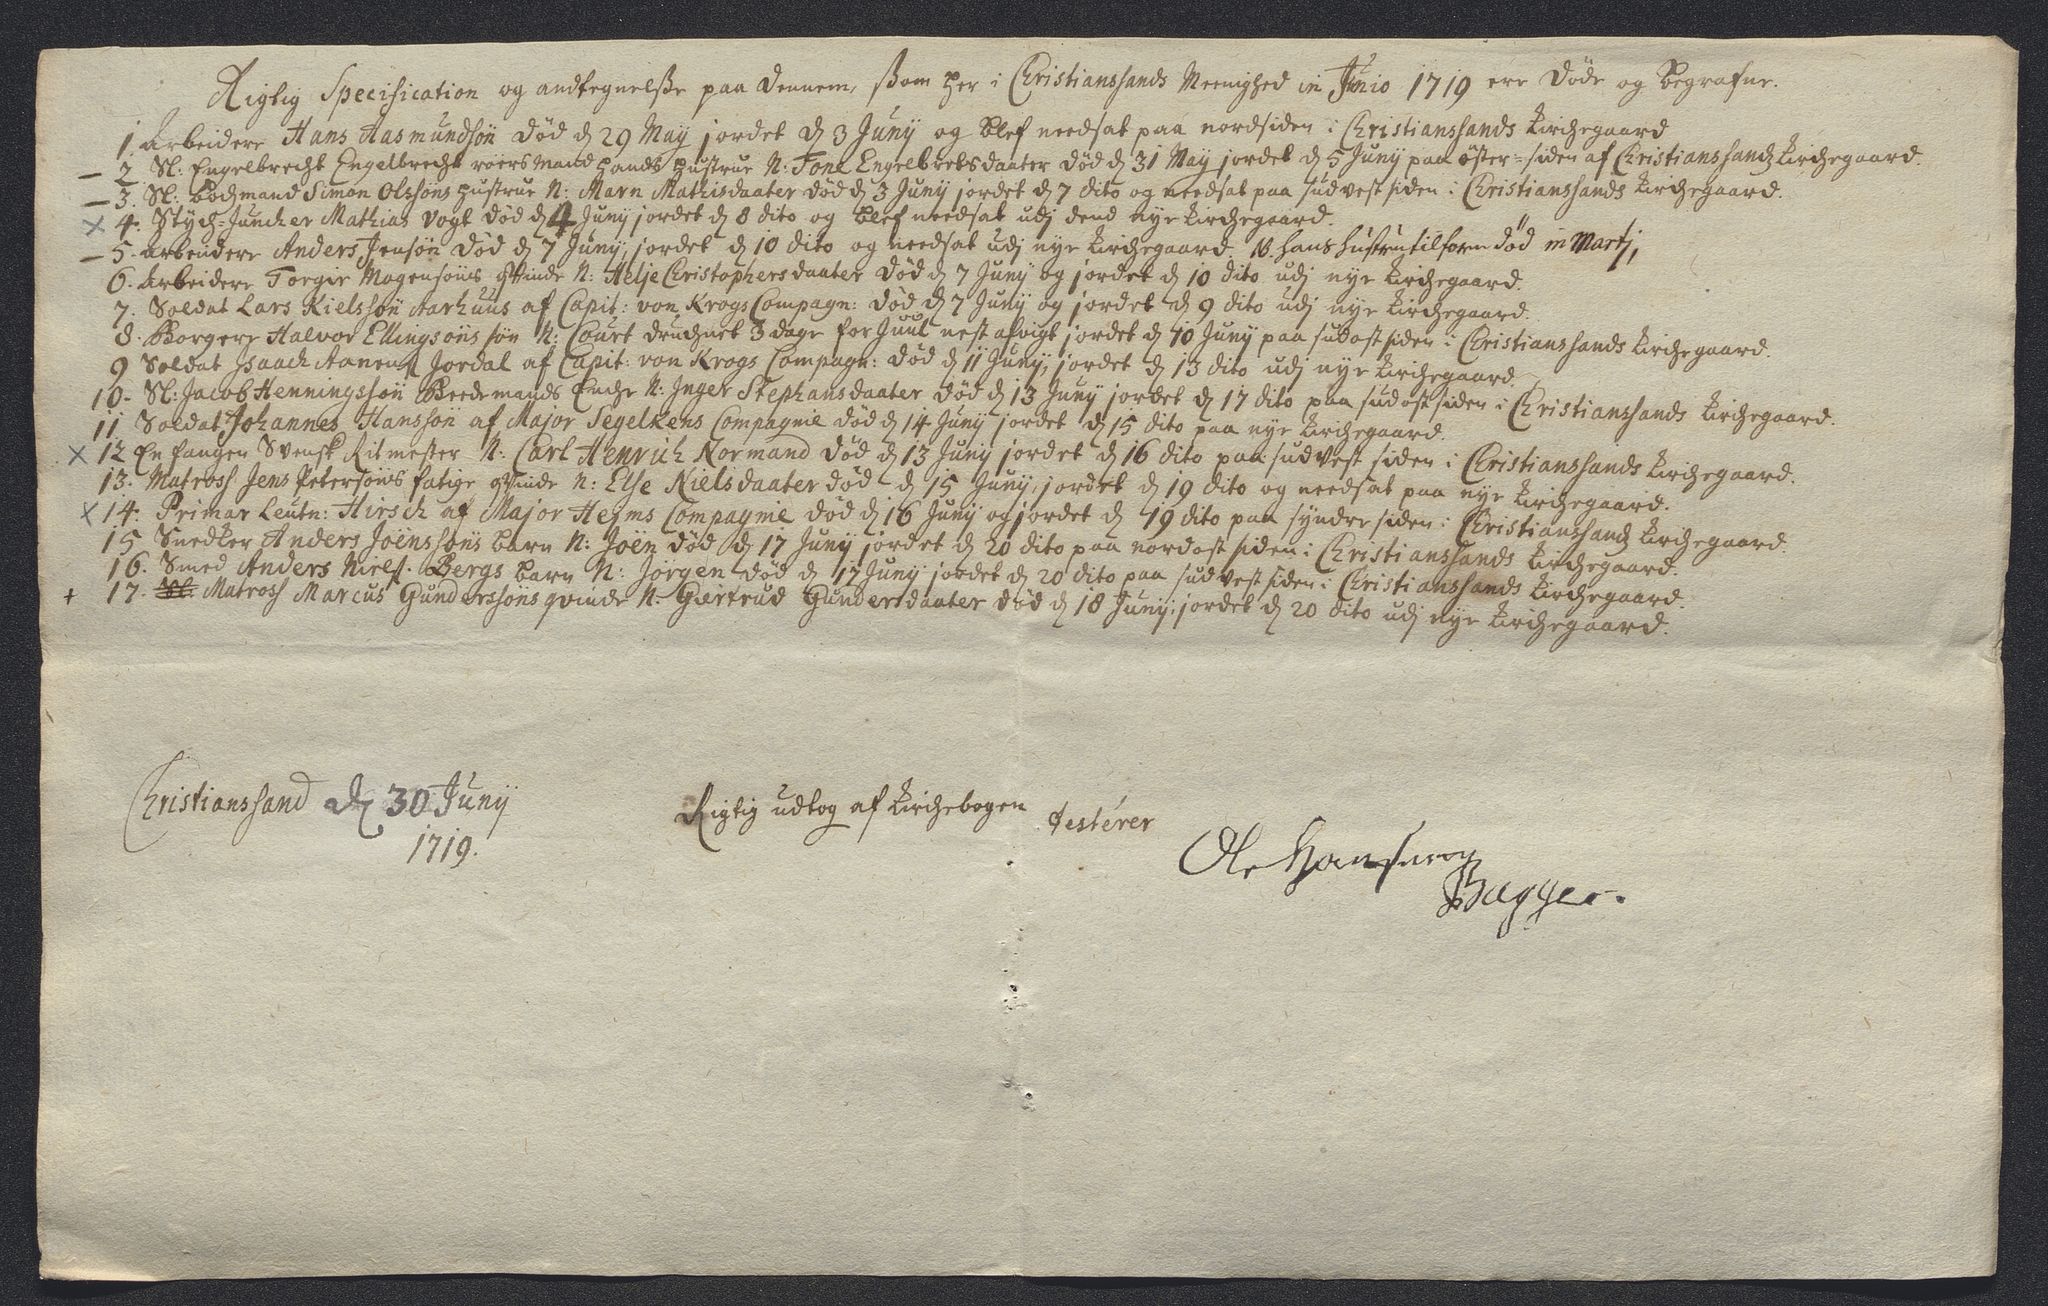 Rigtig Specification og andtegnelsse paa dennem, ssom her i Christianssands Meenighed in Junio 1719 ere døde og begrafne.
1 Arbeidere Hans Aasmundsøn død d 29 May jordet d 3 Junij og blef needsat paa nordsiden i Christianssands Kirchegaard
– 2 Sl: Engelbrecht Engelbrecht roers mand hands hustrue N: Tone Engelbretsdaater død d 31 May jordet d 5 Junij paa öster-siden af Christianssands Kirchegaard.
– 3. Sl: Bodsmand Simon Olssøns hustrue N: Marn Mathisdaater død d 3 Junij jordet d 7 dito og needsat paa sudvest siden i Christianssands Kirchegaard.
x 4. Stÿch-Juncher Mathias Vogt død d 4 Junij jordet d 8 dito og blef needsat udj dend nye Kirchegaard.
– 5. Arbeidere Anders Jensøn død d 7 Junij jordet d 10 dito og needsat udj nye Kirchegaard. NB. hans hustru tilforn død in Martj,
6. Arbeidere Torger Mogensøns qvinde N: Helje Christophersdaater død d 7 Junij og jordet d 10 dito udj nye Kirchegaard.
7. Soldat Lars Nielssøn Aarhuus af Capit: von Krogs Compagn: død d 7 Junij og jordet d 9 dito udj nye Kirchegaard.
8. Borgere Halvor Ellingsøns søn N: Court druchnet 3 dage for Juul nest afvigt jordet d 10 Junij paa sudost siden i Christianssands Kirchegaard.
9 Soldat Isaach Aanens Jordal af Capit: von Krogs Compagn: død d 11 Junij, jordet d 13 dito udj nye Kirchegaard.
10. Sl: Jacob Henningssøn Beedemands Enche N: Inger Stephansdaater død d 13 Junij jordet d 17 dito paa sudost siden i Christianssands Kirchegaard.
11 Soldat Johannes Hanssøn af Major Segelkens Compagnie død d 14 Junij jordet d 15 dito paa nye Kirchegaard.
x 12 En fangen Svensk Ritmester N: Carl Henrich Normand død d 13 Junij jordet d 16 dito paa sudvest siden i Christianssands Kirchegaard.
13. Matross Jens Petersøns fatige qvinde N: Else Nielsdaater død d 15 Junij, jordet d 19 dito og needsat paa nye Kirchegaard.
x 14. Primar Leutn: Hirsch af Major Heyms Compagnie død d 16 Junij og jordet d 19 dito paa syndre siden i Christianssands Kirchegaard.
15 Snedker Anders Joenssøns barn N: Joen død d 17 Junij jordet d 20 dito paa nordost siden i Christianssands Kirchegaard.
16. Smed Anders Niels. Bergs barn N: Jørgen død d 17 Junij jordet d 20 dito paa sudvest siden i Christianssands Kirchegaard.
+ 17. Sl. Matross Marcus Gunderssøns qvinde N: Gertrud Gundersdaater død d 18 Junij: jordet d 20 dito udj nye Kirchegaard.
Christianssand d 30 Junij
1719.
Rigtig udtog af Kirchebogen
testérer
Ole Hansen
Bagger.